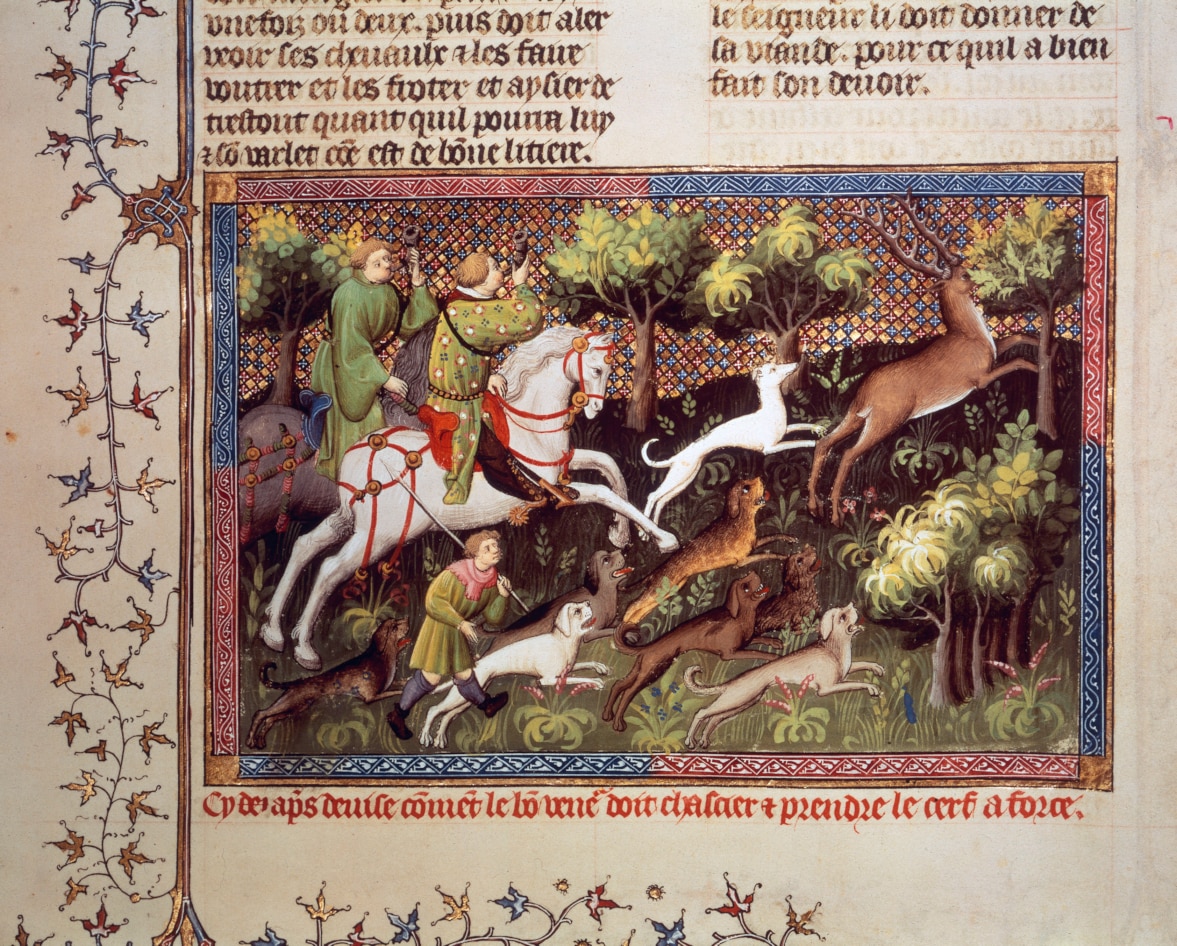 vne foiz ou deux. puis doit aler
veoir ses cheuaulx ⁊ les faire
et les froter et aysier de
trestout quant quil pourra luy
⁊ sō varlet cōe est de bōne litiere.
le seigneur li doit donner de
sa viande. pour ce quil a bien
fait son deuoir.
Cy deẜ apṡ deuise cōmēt le bō vene͛ doit chascier ⁊ prendre le cerf a force.